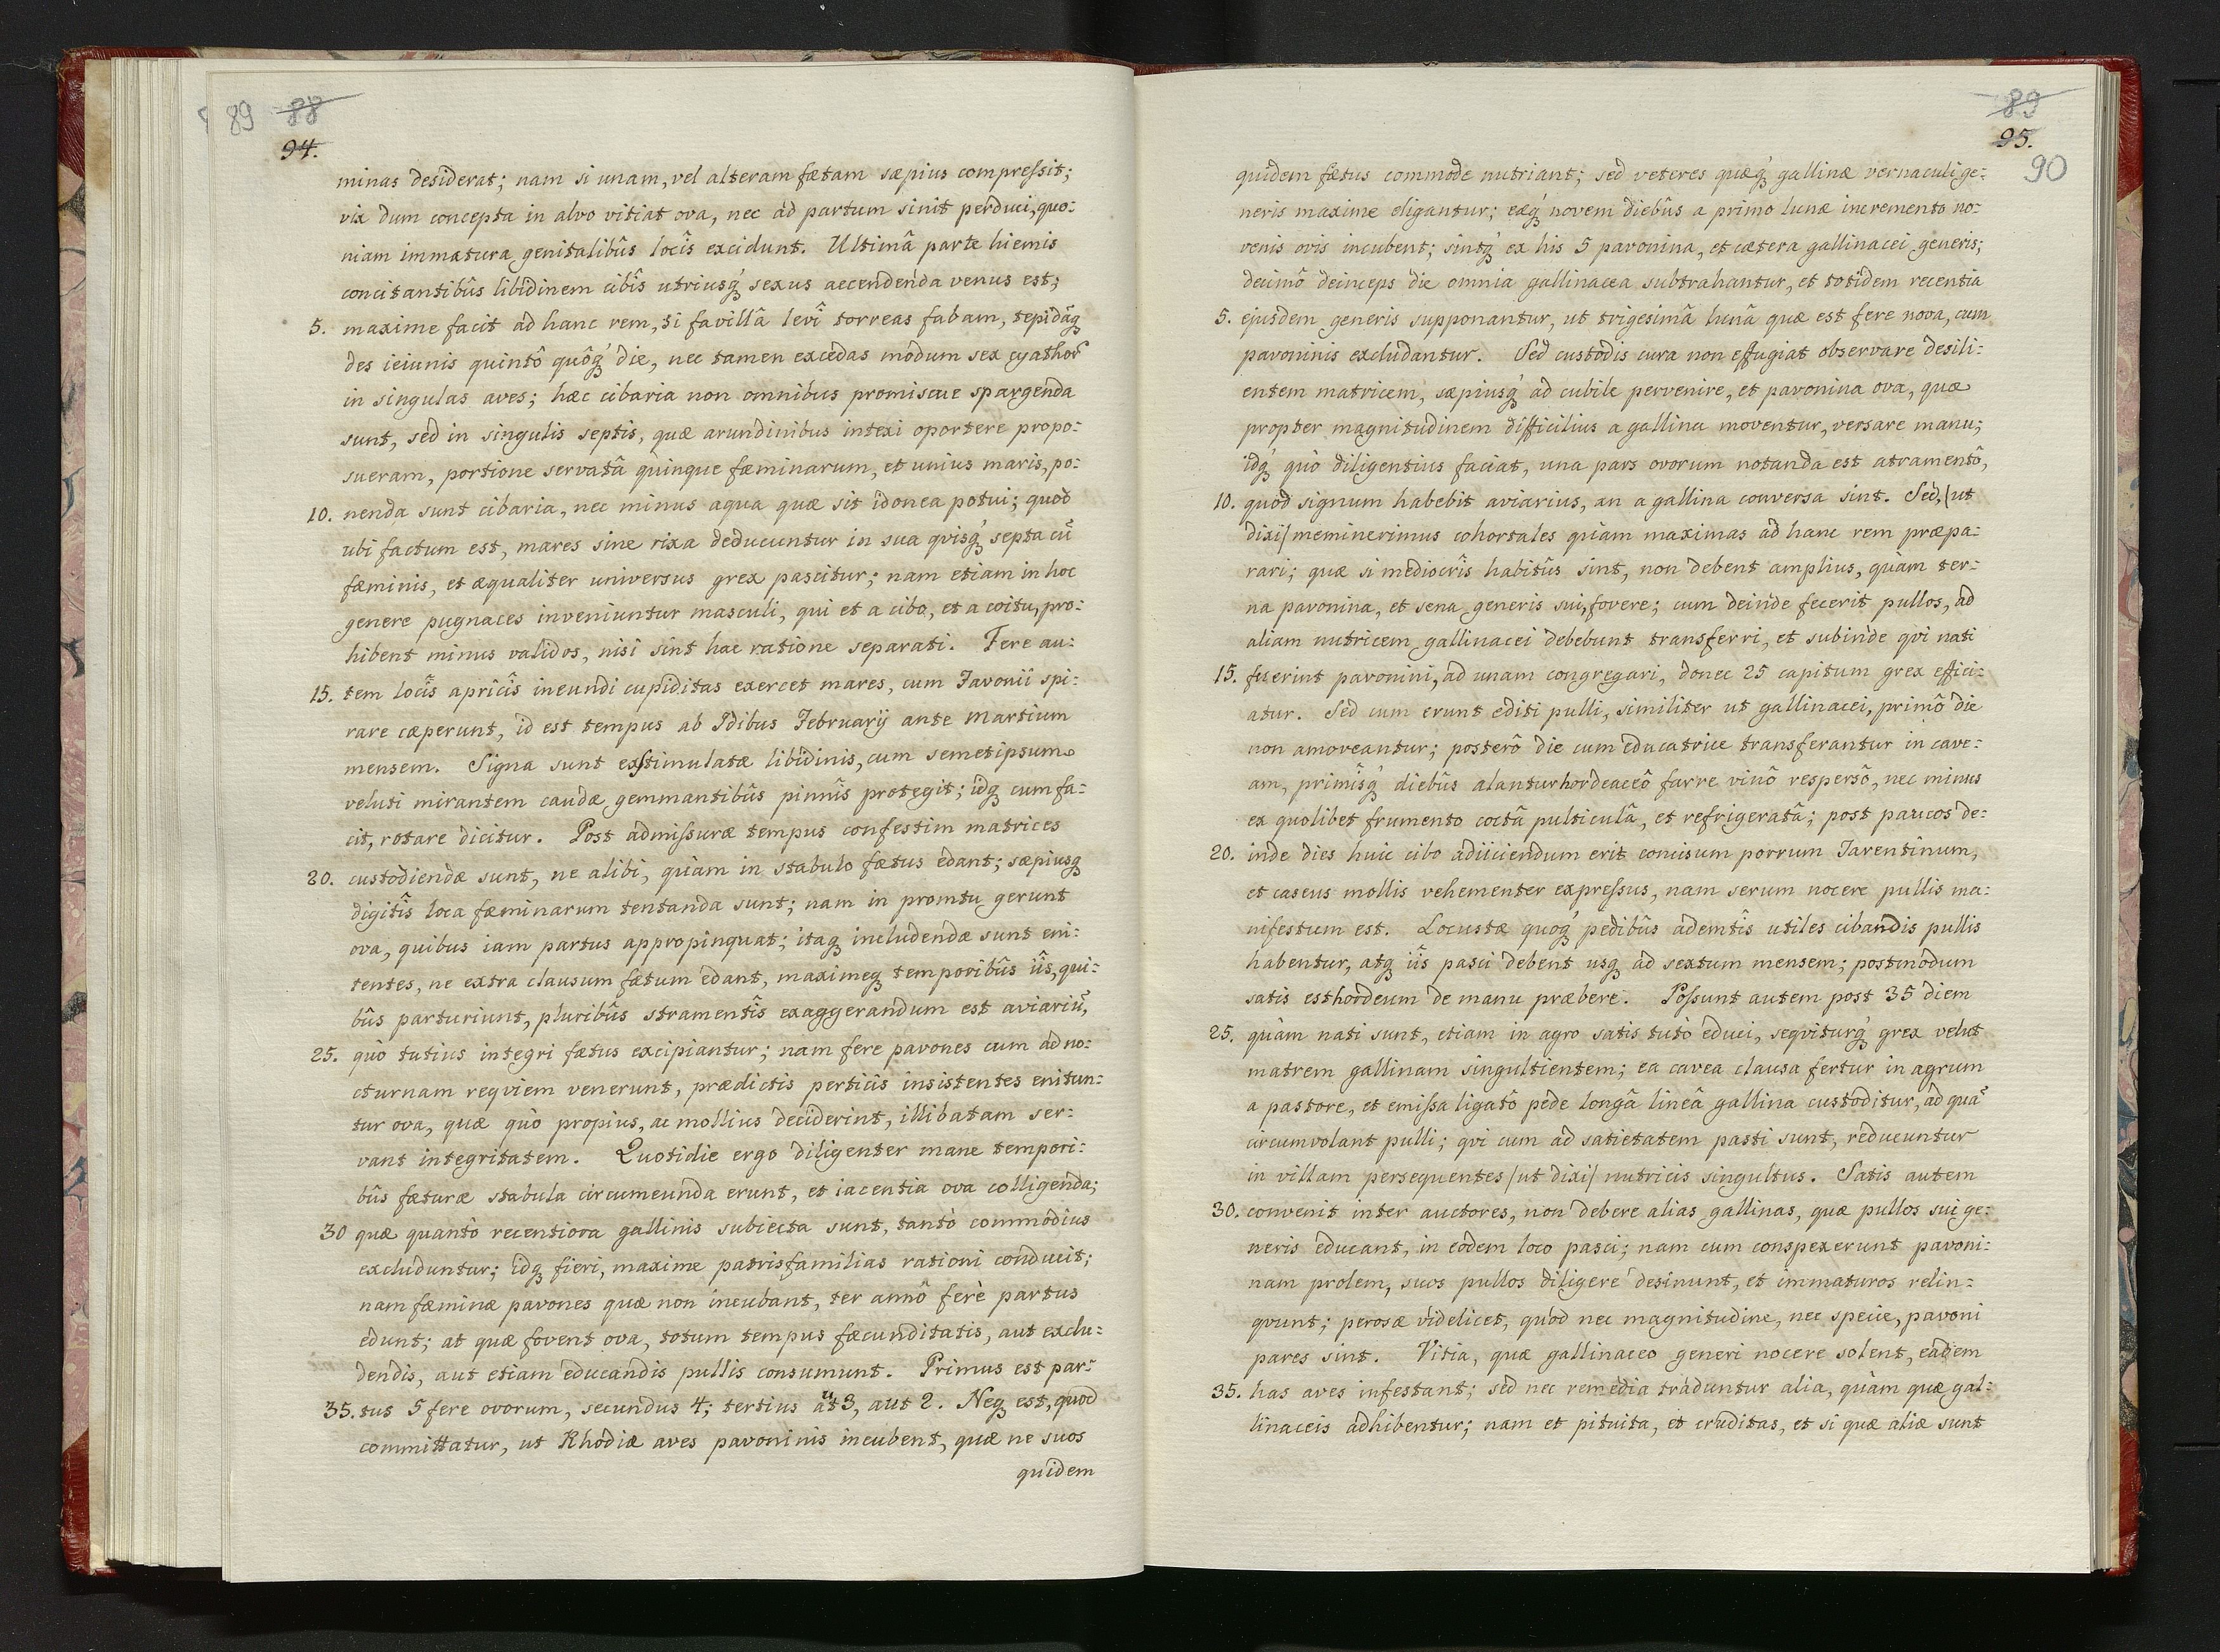 89 88
94.
minas desiderat; nam si unam, vel alteram fætam sæpius compressit;
vix dum concepta in alvo vitiat ova, nec ad partum sinit perduci, quo:
niam immatura genitalibûs locîs excidunt. Ultimâ parte hiemis
concitantibûs libidinem cibîs utriusq́ sexus accendenda venus est;
5. maxime facit ad hanc rem, si favillâ levî torreas fabam, tepidãq
des ieiunis quintô quôq́ die, nec tamen excedas modum sex cyathoꝝ
in singulas aves; hæc cibaria non omnibus promiscue spargenda
sunt, sed in singulis septis, quæ arundinibus intexi oportere propo:
sueram, portione servatâ quinque fæminarum, et unius maris, po:
10. nenda sunt cibaria, nec minus aqua quæ sit idonea potui; quod
ubi factum est, mares sine rixa deducuntur in sua qvisq́ septa cũ
fæminis, et æqualiter universus grex pascitur; nam etiam in hoc
genere pugnaces inveniuntur masculi, qui et a cibo, et a coitu, pro:
hibent minus validos, nisi sint hac ratione separati. Fere au:
15. tem locîs apricîs ineundi cupiditas exercet mares, cum Favonii spi:
rare cæperunt, id est tempus ab Idibus Februarÿ ante Martium
mensem. Signa sunt exstimulatæ libidinis, cum semetipsum
veluti mirantem caudæ gemmantibûs pinnîs protegit; idq cum fa:
cit, rotare dicitur. Post admissuræ tempus confestim matrices
20. custodiendæ sunt, ne alibi, quàm in stabulo fætus edant; sæpiusq
digitîs loca fæminarum tentanda sunt; nam in promtu gerunt
ova, quibus iam partus appropinquat; itaq includendæ sunt eni:
tentes, ne extra clausum fætum edant, maximeq temporibûs iîs, qui:
bûs parturiunt, pluribûs stramentîs exaggerandum est aviariũ,
25. quò tutius integri fætus excipiantur; nam fere pavones cum ad no:
cturnam reqviem venerunt, prædictis perticis insistentes enitun:
tur ova, quæ quò propius, ac mollius deciderint, illibatam ser:
vant integritatem. Quotidie ergo diligenter mane tempori:
bûs fæturæ stabula circumeunda erunt, et iacentia ova colligenda;
30 quæ quantò recentiora gallinis subiecta sunt, tantò commodius
excluduntur; idq fieri, maxime patrisfamilias rationi conducit;
nam fæminæ pavones quæ non incubant, ter annô ferè partus
edunt; at quæ fovent ova, totum tempus fæcunditatis, aut exclu:
dendis, aut etiam educandis pullis consumunt. Primus est par:
35. tus 5 fere ovorum, secundus 4; tertius aut 3, aut 2. Neq est, quod
committatur, ut Rhodiæ aves pavoninis incubent, quæ ne suos
quidem
89
95.
90
quidem fætus commode nutriant; sed veteres quæq́ gallinæ vernaculi ge:
neris maxime eligantur; eæq́ novem diebûs a primo lunæ incremento no:
venis ovis incubent; sintq́ ex his 5 pavonina, et cætera gallinacei generis;
decimô deinceps die omnia gallinacea subtrahantur, et totidem recentia
5. ejusdem generis supponantur, ut trigesimâ lunâ quæ est fere nova, cum
pavoninis excludantur. Sed custodis cura non effugiat observare desili:
entem matricem, sæpiusq́ ad cubile pervenire, et pavonina ova, quæ
propter magnitudinem difficilius a gallina moventur, versare manu;
idq́ quò diligentius faciat, una pars ovorum notanda est atramentô,
10. quod signum habebit aviarius, an a gallina conversa sint. Sed, /ut
dixi/ meminerimus cohortales quàm maximas ad hanc rem præpa:
rari; quæ si mediocrîs habitûs sint, non debent amplius, quàm ter:
na pavonina, et sena generis sui, fovere; cum deinde fecerit pullos, ad
aliam nutricem gallinacei debebunt transferri, et subinde qvi nati
15. fuerint pavonini, ad unam congregari, donec 25 capitum grex effici:
atur. Sed cum erunt editi pulli, similiter ut gallinacei, primô die
non amoveantur; posterô die cum educatrice transferantur in cave:
am, primîsq́ diebûs alantur hordeaceô farre vinô resperso, nec minus
ex quolibet frumento coctâ pulticulâ, et refrigeratâ; post paucos de:
20. inde dies huic cibo adiiciendum erit concisum porrum Tarentinum,
et caseus mollis vehementer expressus, nam serum nocere pullis ma:
nifestum est. Locustæ quoq́ pedibûs ademtîs utiles cibandis pullis
habentur, atq iîs pasci debent usq ad sextum mensem; postmodum
satis est hordeum de manu præbere. Possunt autem post 35 diem
25. quàm nati sunt, etiam in agro satis tutò educi, seqviturq́ grex velut
matrem gallinam singultientem; ea cavea clausa fertur in agrum
a pastore, et emissa ligatô pede longâ lineâ gallina custoditur, ad quã
circumvolant pulli; qvi cum ad satietatem pasti sunt, reducuntur
in villam persequentes /ut dixi/ nutricis singultus. Satis autem
30. convenit inter auctores, non debere alias gallinas, quæ pullos sui ge:
neris educant, in eodem loco pasci; nam cum conspexerunt pavoni:
nam prolem, suos pullos diligere desinunt, et immaturos relin=
qvunt; perosæ videlicet, quòd nec magnitudine, nec specie, pavoni
pares sint. Vitia, quæ gallinaceo generi nocere solent, eadem
35. has aves infestant; sed nec remedia traduntur alia, quàm quæ gal:
linaceis adhibentur; nam et pituita, et cruditas, et si quæ aliæ sunt